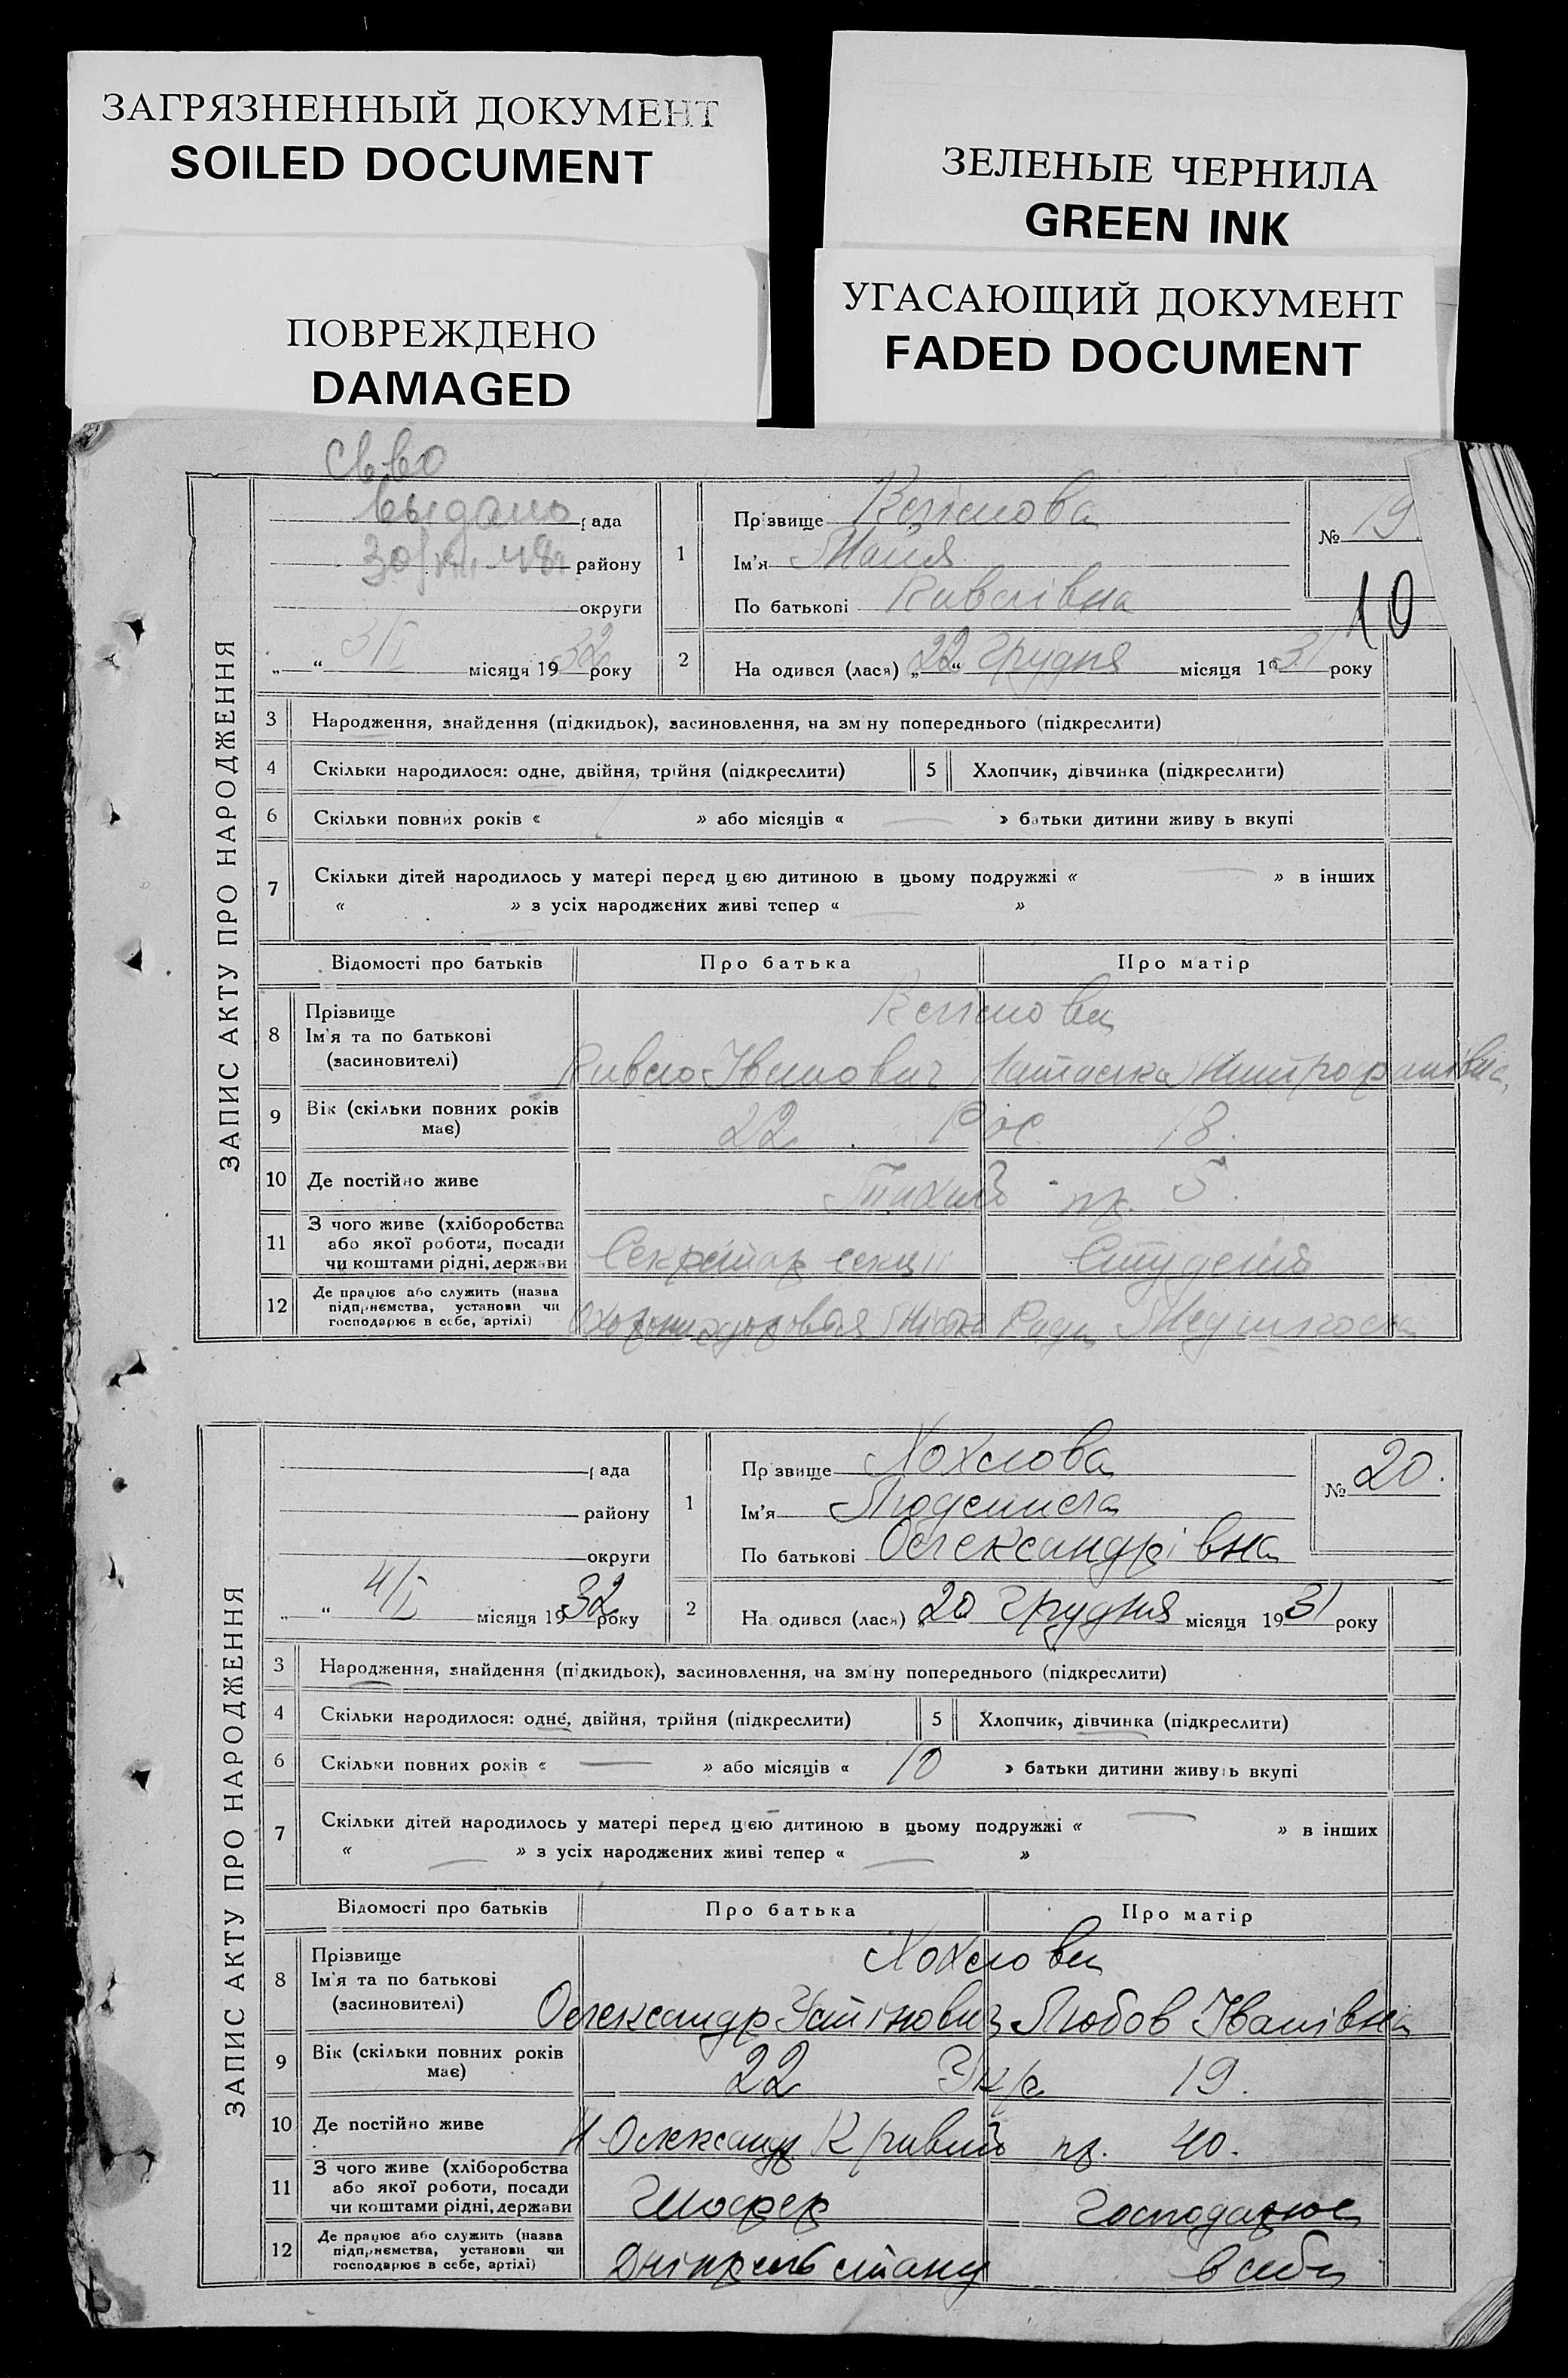 ЗАГРЯЗНЕННЫЙ ДОКУМЕНТ
SOILED DOCUMENT
ЗЕЛЕНЫЕ ЧЕРНИЛА
GREEN INK
ПОВРЕЖДЕНО
DAMAGED
УГАСАЮЩИЙ ДОКУМЕНТ
FADED DOCUMENT
ЗАПИС АКТУ ПРО НАРОДЖЕННЯ
св-во
выдано рада
района
району
округи
„ “ 3/I місяця 1932 року
1 Прізвище
Ім'я Майя
По батькові
№ 19
10
2 На одився (лася) „22“ Грудня місяця 1931 року
3 Народження, знайдення (підкидьок), засиновлення, на зміну попереднього (підкреслити)
4 Скільки народилося: одне, двійня, трійня (підкреслити) 5 Хлопчик, дівчинка (підкреслити)
6 Скільки повних років « » або місяців « — » батьки дитини живуть вкупі
7 Скільки дітей народилось у матері перед цією дитиною в цьому подружжі « — » в інших
« » з усіх народжених живі тепер « — »
Відомості про батьків Про батька Про матір
8 Прізвище
Ім'я та по батькові
(засиновителі) Іванович Митрофанівна
9 Вік (скільки повних років має) 22 Рос 18.
10 Де постійно живе пр. 5.
11 З чого живе (хліборобства або якої роботи, посади чи коштами рідні, держави Секретар секції Студент
12 Де працює або служить (назва підприємства, установи чи господарює в себе, артілі) Охорони здоровья Ради
ЗАПИС АКТУ ПРО НАРОДЖЕННЯ
рада
району
округи
„ “ 4/I місяця 1932 року
1 Прізвище Хохлова
Ім'я Людмила
По батькові Олександрівна
№ 20.
2 На одився (лася) „20 Грудня місяця 1931 року
3 Народження, знайдення (підкидьок), засиновлення, на зміну попереднього (підкреслити)
4 Скільки народилося: одне, двійня, трійня (підкреслити) 5 Хлопчик, дівчинка (підкреслити)
6 Скільки повних років « — » або місяців « 10 » батьки дитини живуть вкупі
7 Скільки дітей народилось у матері перед цією дитиною в цьому подружжі « — » в інших
« — » з усіх народжених живі тепер « — »
Відомості про батьків Про батька Про матір
8 Прізвище Хохлови
Ім'я та по батькові
(засиновителі) Олександр Устінович Любов Іванівна
9 Вік (скільки повних років має) 22 Укр 19.
10 Де постійно живе Н Олександр Кривий пр. 40.
11 З чого живе (хліборобства або якої роботи, посади чи коштами рідні, держави Шофер Господарює
12 Де працює або служить (назва підприємства, установи чи господарює в себе, артілі) в себе